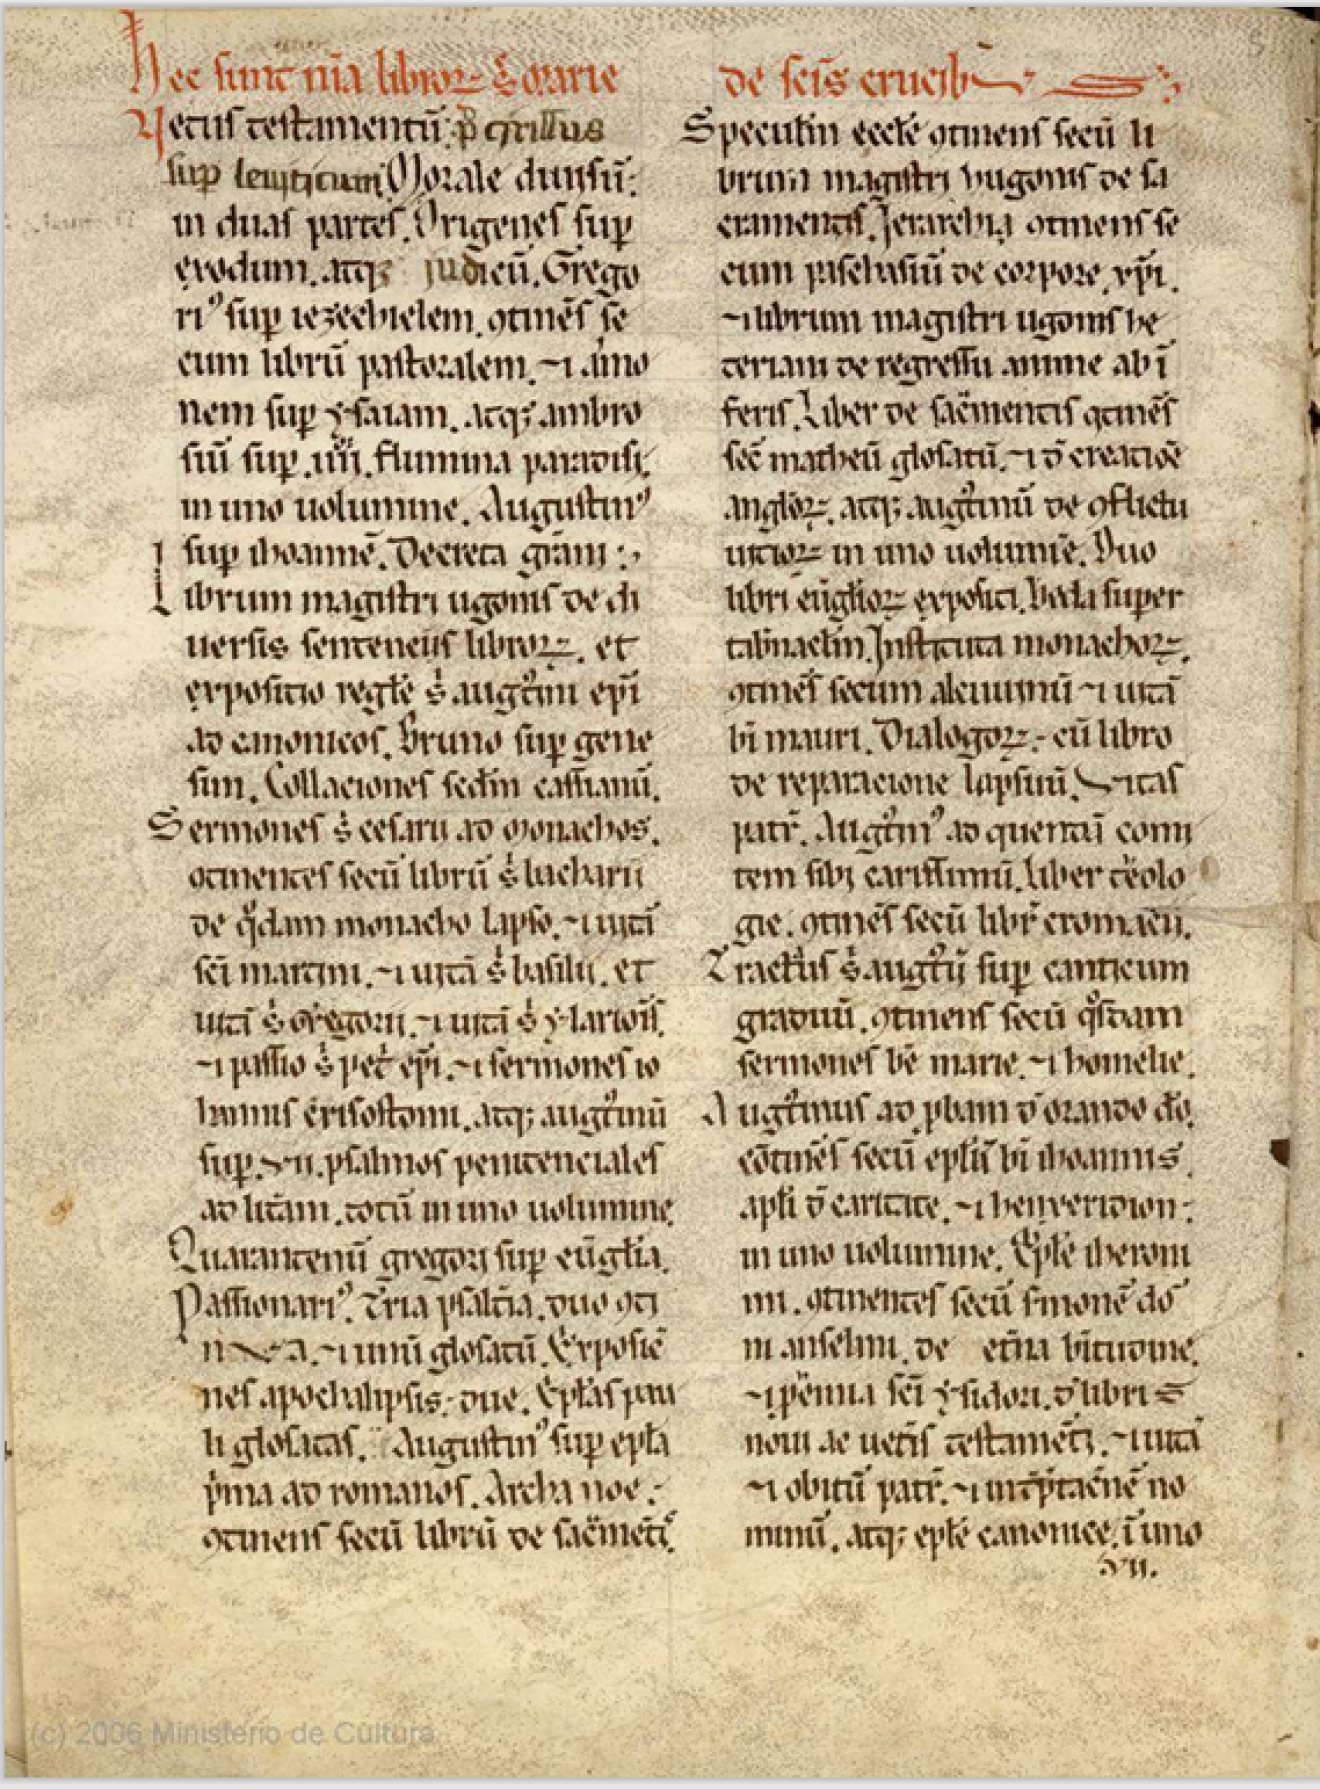 hec sunt nīa libroꝝ S̄ Marie
Vetus testamentū. ꝑ cirillus
suꝑ leuiticum. Morale diuisū:
in duas partes. Origenes suꝑ
exodum. atqꝫ judicū. Grego
riꝰ suꝑ iezechielem. ꝯtinēs se
cum librū pastoralem. ⁊
nem suꝑ ysaiam. atqꝫ ambro
siū suꝑ .iiii. flumina paradisi.
in uno uolumine. Augustinꝰ
suꝑ ihoannē. Decreta grām:
Librum magistri ugonis de di
uersis sentenciis libroꝝ. et
expositio regłe s̄ augtini epī
ad canonicos. Bruno suꝑ gene
sim. Collaciones sedīn cassianū.
Sermones s̄ cesarii ad monachos.
ꝯtinentes secū librū s̄ bacharii
de qdam monacho lapso. ⁊ uitā
scī martini. ⁊ uitā s̄ basilii. et
uitā s̄ Gregorii. ⁊ uitā s̄ ylarioīs.
⁊ passio s̄ pet epī. ⁊ sermones io
hannis crisostomi. atqꝫ augtinū
suꝑ .vii. psalmos penitenciales
ad litām. totū in uno uolumine.
Quarantenū gregorj suꝑ eūgłia.
Passionariꝰ. Tria psaltia. duo ꝯti
nua. ⁊ unū glosatū. Exposiē
nes apochalipsis: due. Epłas pau
li glosatas. Augustinꝰ suꝑ epła
pma ad romanos. Archa noe:
ꝯtinens secū librū de sacmētis
de scīs crucib
Speculīn eccłe ꝯtinens secū li
brum magistri hugonis de sa
cramentis. Jerarchia ꝯtinens se
cum paschasiū de corpore xp̄i.
⁊ librum magistri ugonis he
teriam de regressu anime ab ī
feris. Liber de sacmentis ꝯtinēs
sec matheū glosatū. ⁊ đ creacioē
angloꝝ. atqꝫ augtinū de ꝯflictu
uicioꝝ in uno uolumīe. Duo
libri eūglioꝝ expositi. Beda super
tabnaclīn. Instituta monachoꝝ.
ꝯtinēs secum alcuuinū ⁊ uitā
bī mauri. Dialogoꝝ. cū libro
de reparacione lapsuū. Vitas
patr̄. Augtinꝰ ad quendā comi
tem sibi carissimū. Liber teolo
gie. ꝯtinēs secū libr cromacii.
Tractus s̄ augtii suꝑ canticum
graduū. ꝯtinens secū qsdam
sermones bē marie. ⁊ homelie.
Augtinus ad pbam đ orando do.
cōtinēs secū epłū bī ihoannis
apłi đ caritate. ⁊ henveridion:
in uno uolumine. Epłe iheroni
mi. ꝯtinentes secū smonē do
ni anselmi. de etna btitudine.
⁊ phenna scī ysidori. đ libris
noui ac uetis testamēti. ⁊ uitā
⁊ obitū patr̄. ⁊ intptacnē no
minū. atqꝫ epłe canonice. ī uno
.vii.
(c) 2006 Ministerio de Cultura